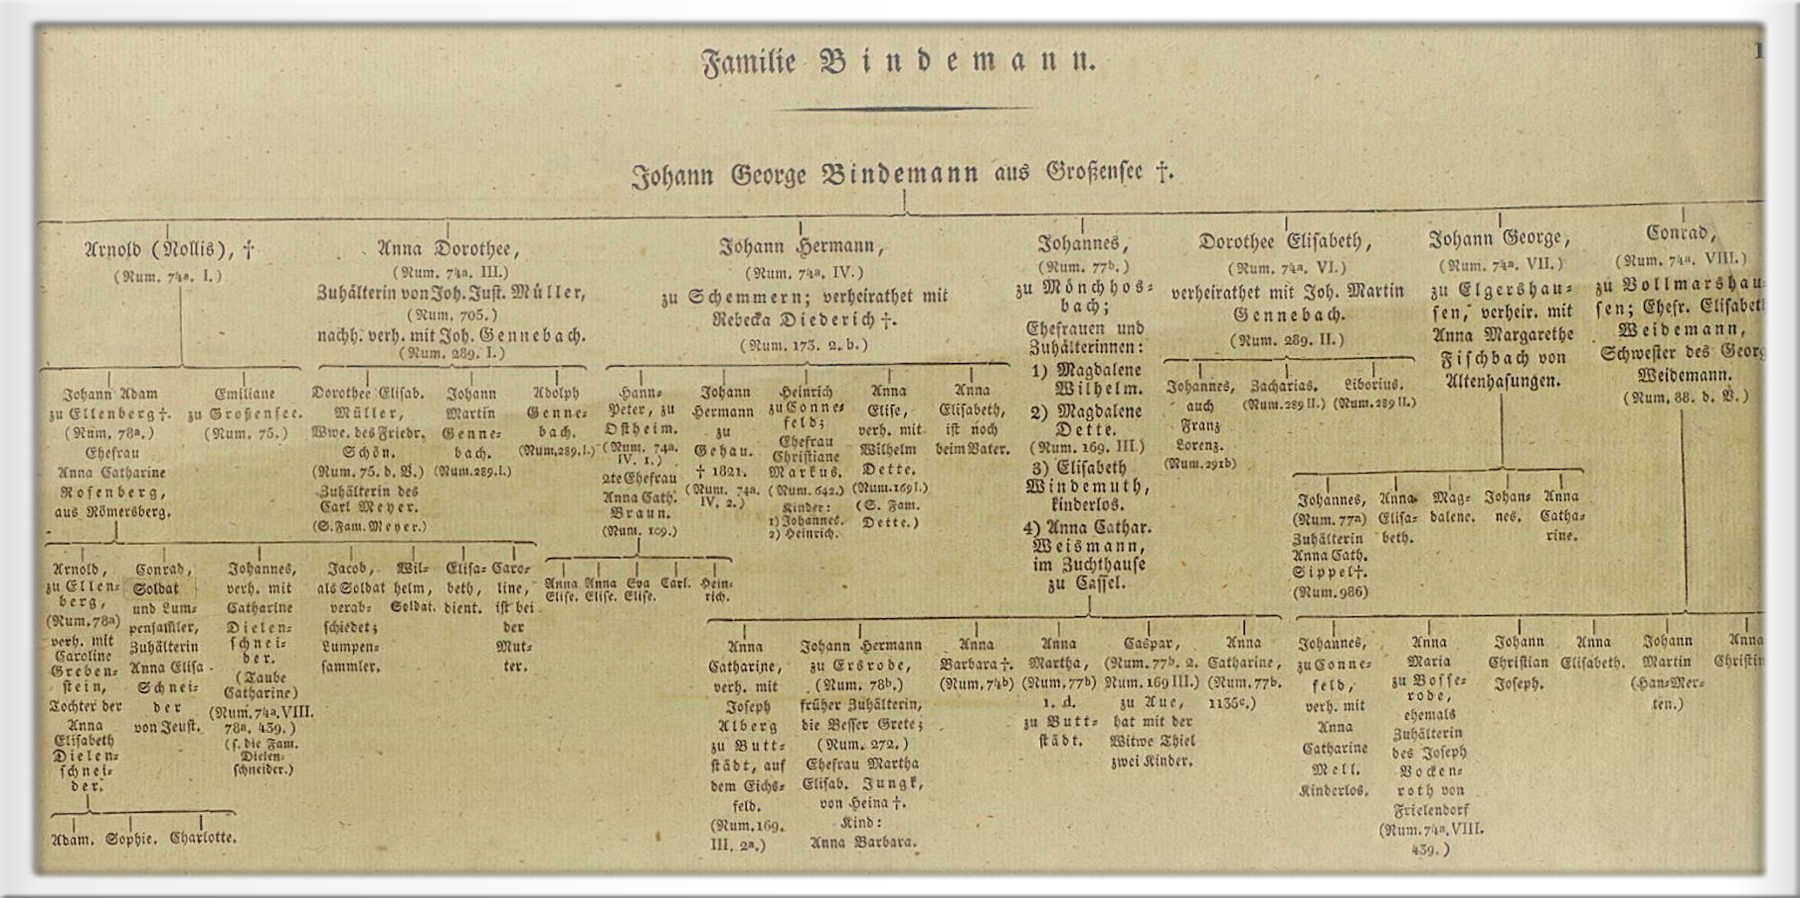 Familie Bindemann.
Johann George Bindemann aus Großensee †.
Arnold (Nollis), †
(Num. 74a. I.)
Anna Dorothee,
(Num. 74a. III.)
Zuhälterin von Joh. Just. Müller,
(Num. 705.)
nachh. verh. mit Joh. Gennebach.
(Num. 289. I.)
Johann Hermann,
(Num. 74a. IV.)
zu Schemmern; verheirathet mit
Rebecka Diederich †.
(Num. 173. 2. b.)
Johannes,
(Num. 77b.)
zu Mönchhos-
bach;
Ehefrauen und
Zuhälterinnen:
1) Magdalene
Wilhelm.
2) Magdalene
Dette.
(Num. 169. III.)
3) Elisabeth
Windemuth,
kinderlos.
4) Anna Cathar.
Weismann,
im Zuchthause
zu Cassel.
Dorothee Elisabeth,
(Num. 74a. VI.)
verheirathet mit Joh. Martin
Gennebach.
(Num. 289. II.)
Johann George,
(Num. 74a. VII.)
zu Elgershau-
sen, verheir. mit
Anna Margarethe
Fischbach von
Altenhasungen.
Conrad,
(Num. 74a. VIII.)
zu Vollmarshau-
sen; Ehefr. Elisabeth
Weidemann,
Schwester des Georg
Weidemann.
(Num. 88. d. V.)
Johann Adam
zu Ellenberg †.
(Num. 78a.)
Ehefrau
Anna Catharine
Rosenberg,
aus Römersberg.
Emiliane
zu Großensee.
(Num. 75.)
Dorothee Elisab.
Müller,
Wwe. des Friedr.
Schön.
(Num. 75. d. V.)
Zuhälterin des
Carl Meyer.
(S. Fam. Meyer.)
Johann
Martin
Genne-
bach.
(Num. 289. I.)
Adolph
Genne-
bach.
(Num. 289. I.)
Hann-
Peter, zu
Ostheim.
(Num. 74a.
IV. 1.)
2te Ehefrau
Anna Cath.
Braun.
(Num. 109.)
Johann
Hermann
zu
Gehau.
† 1821.
(Num. 74a.
IV. 2.)
Heinrich
zu Conne-
feld;
Ehefrau
Christiane
Markus.
(Num. 642.)
Kinder:
1) Johannes.
2) Heinrich.
Anna
Elise,
verh. mit
Wilhelm
Dette.
(Num. 169 I.)
(S. Fam.
Dette.)
Anna
Elisabeth,
ist noch
beim Vater.
Johannes,
auch
Franz
Lorenz.
(Num. 291b)
Zacharias.
(Num. 289 II.)
Liborius.
(Num. 289 II.)
Johannes,
(Num. 77a)
Zuhälterin
Anna Cath.
Sippel †.
(Num. 986)
Anna
Elisa-
beth.
Mag-
dalene.
Johan-
nes.
Anna
Catha-
rine.
Arnold,
zu Ellen-
berg,
(Num. 78a)
verh. mit
Caroline
Greben-
stein,
Tochter der
Anna
Elisabeth
Dielen-
schnei-
der.
Conrad,
Soldat
und Lum-
pensamler,
Zuhälterin
Anna Elisa-
Schnei-
der
von Jeust.
Johannes,
verh. mit
Catharine
Dielen-
schnei-
der.
(Taube
Catharine)
(Num. 74a. VIII.
78a. 439.)
(s. die Fam.
Dielen-
schneider.)
Jacob,
als Soldat
verab-
schiedet;
Lumpen-
sammler.
Wil-
helm,
Soldat.
Elisa-
beth,
dient.
Caro-
line,
ist bei
der
Mut-
ter.
Anna
Elise.
Anna
Elise.
Eva
Elise.
Carl.
Hein-
rich.
Anna
Catharine,
verh. mit
Joseph
Alberg
zu Butt-
städt, auf
dem Eichs-
feld.
(Num. 169.
III. 2a.)
Johann Hermann
zu Ersrode,
(Num. 78b.)
früher Zuhälterin,
die Besser Grete;
(Num. 272.)
Ehefrau Martha
Elisab. Jungk,
von Heina †.
Kind:
Anna Barbara.
Anna
Barbara †.
(Num. 74b)
Anna
Martha,
(Num. 77b)
1. d.
zu Butt-
städt.
Caspar,
(Num. 77b. 2.
Num. 169 III.)
zu Aue,
hat mit der
Witwe Thiel
zwei Kinder.
Anna
Catharine,
(Num. 77b.
1135c.)
Johannes,
zu Conne-
feld,
verh. mit
Anna
Catharine
Mell.
Kinderlos.
Anna
Maria
zu Bosse-
rode,
ehemals
Zuhälterin
des Joseph
Bocken-
roth von
Frielendorf
(Num. 74a. VIII.
439.)
Johann
Christian
Joseph.
Anna
Elisabeth.
Johann
Martin
(Han-Mer-
ten.)
Anna
Christin
Adam.
Sophie.
Charlotte.